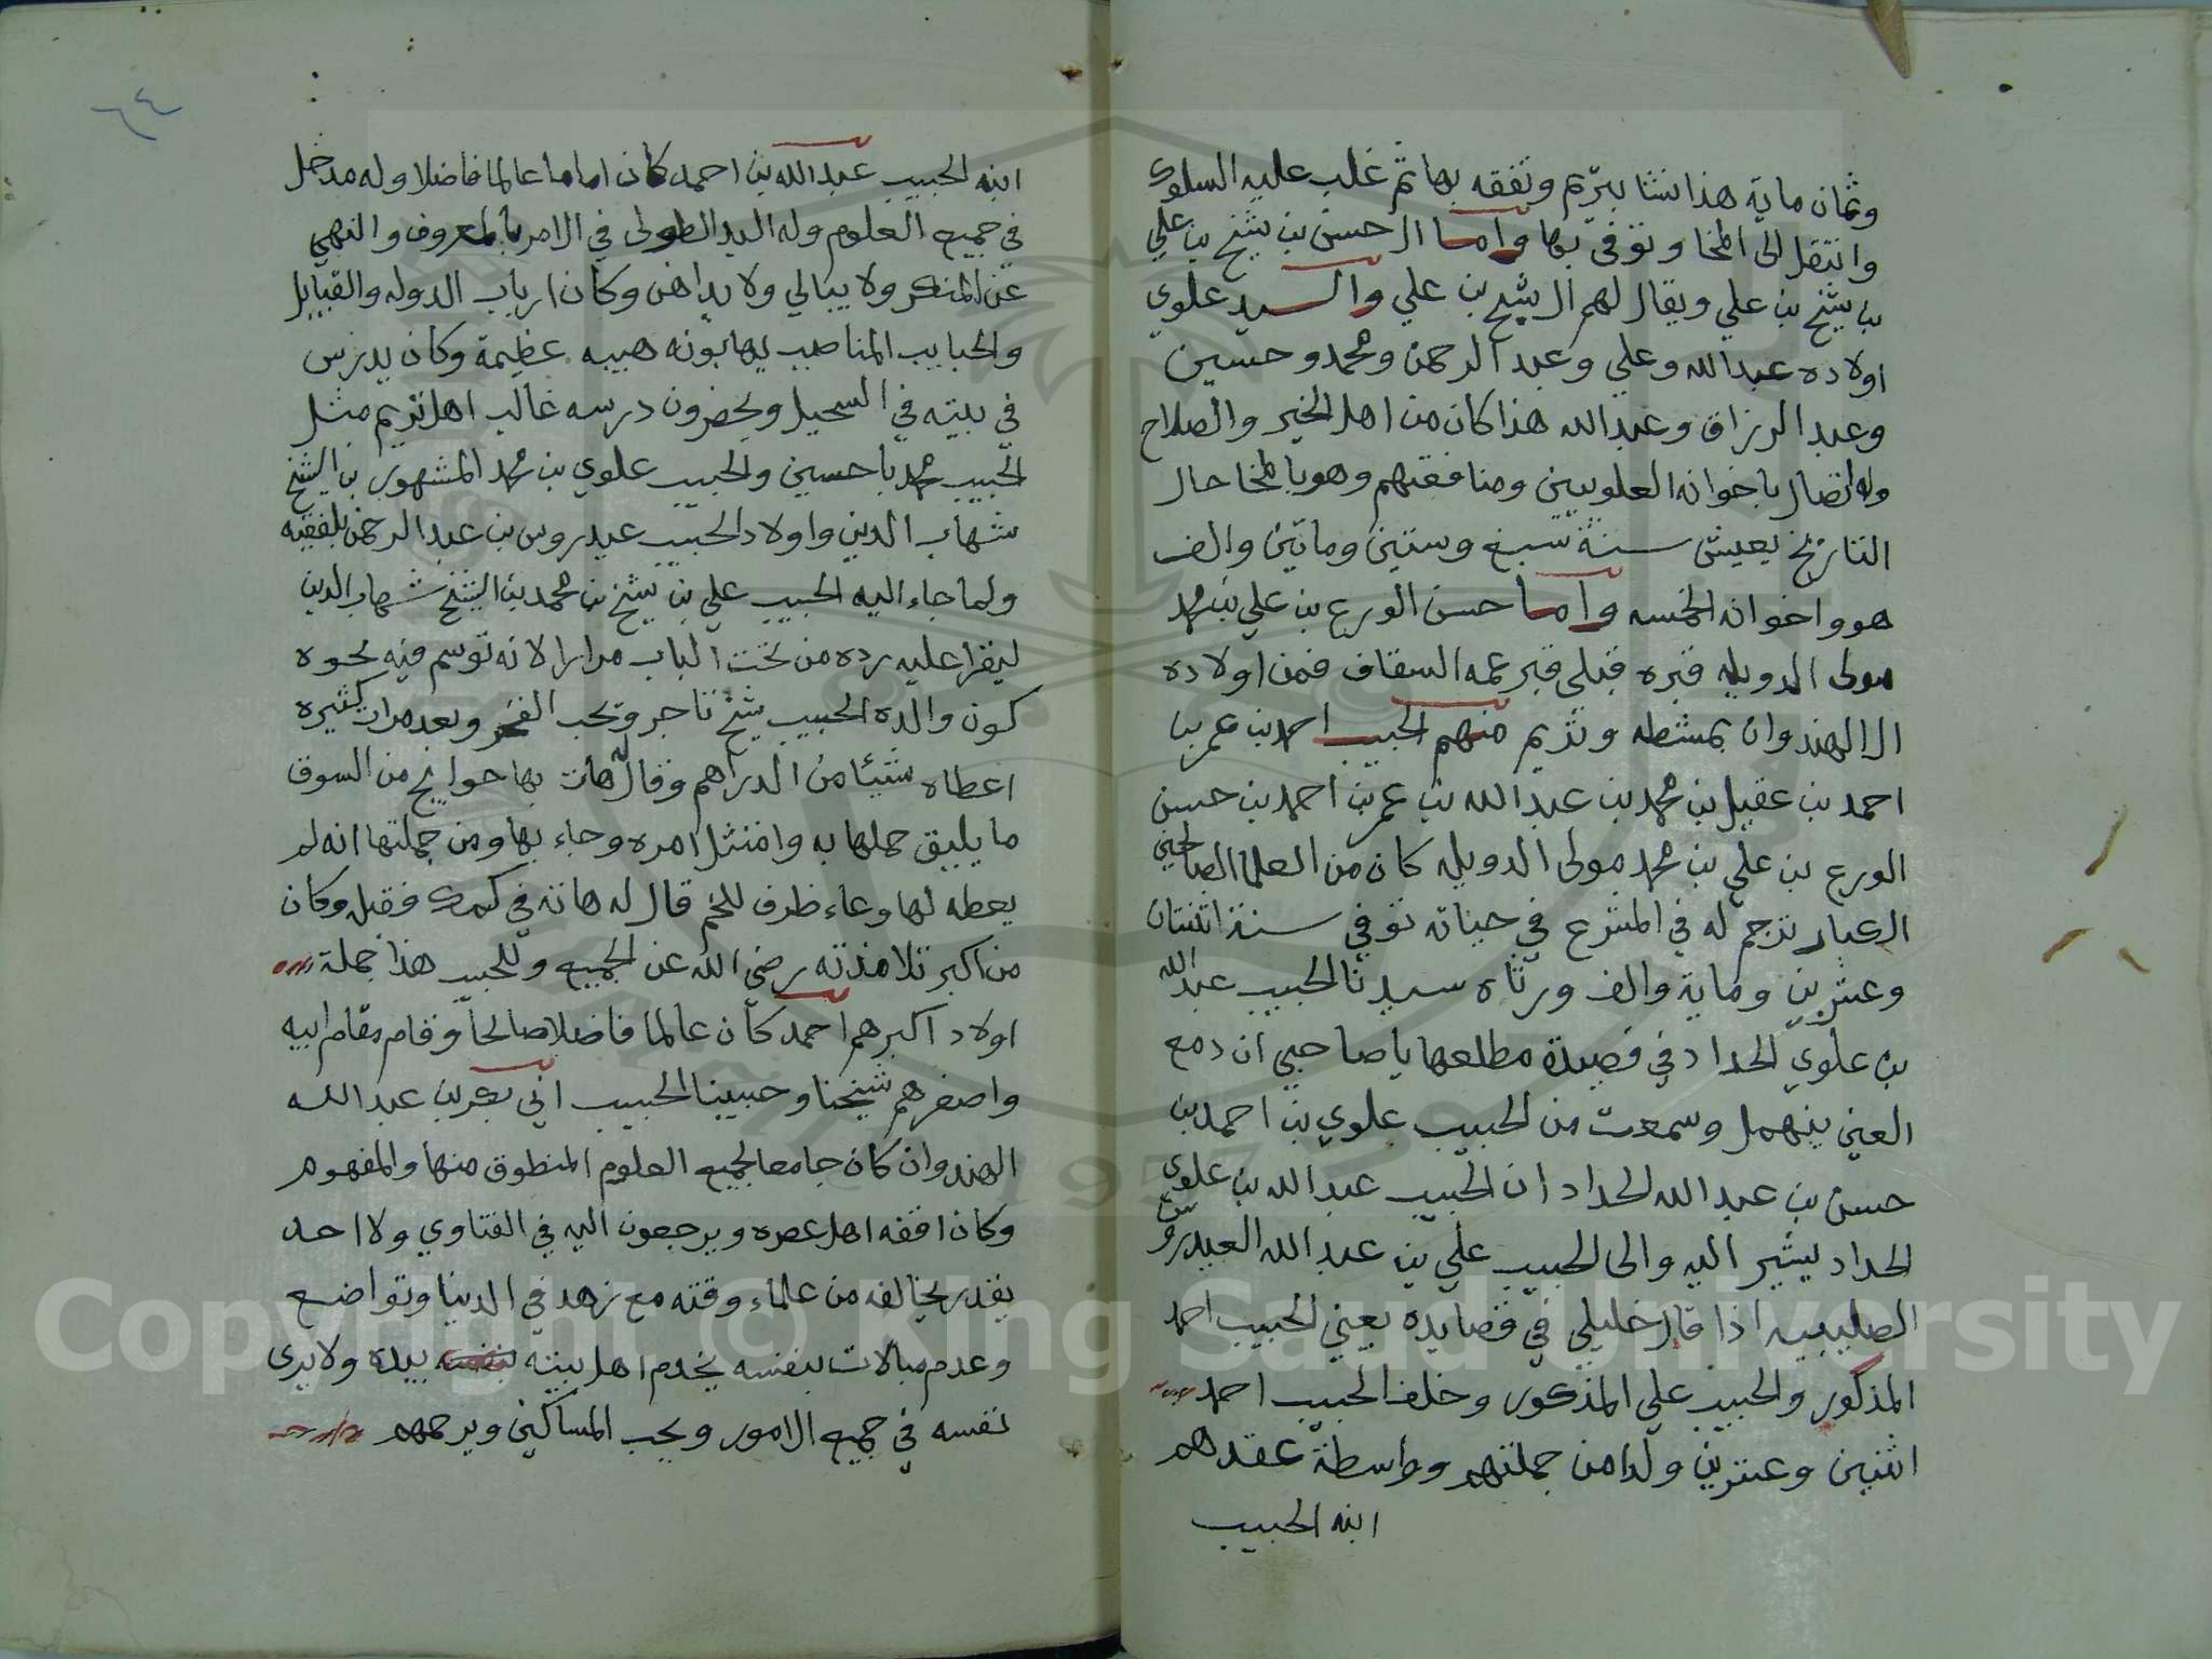 وثمان ماية هذا نشا بتريم وتفقه بها ثم غلب عليه السلوك
وانتقل الى المخا وتوفي بها واما ال حسن بن شيخ بن علي
بن شيخ بن علي ويقال لهم ال شيخ بن علي والسيد علوي
اولاده عبدالله وعلي وعبد الرحمن ومحمد وحسين
وعبد الرزاق وعبدالله هذا كان من اهل الخير والصلاح
وله اتصال باخوانه العلويين ومنافعتهم وهو بالمخا حال
التاريخ يعيش سنة سبع وستين وماتين والف
هو واخوانه الخمسه واما حسن الورع بن علي بن محمد
مولى الدويله قبره قبلي قبر عمه السقاف فمن اولاده
ال الهندوان بمشطه وتريم منهم الحبيب احمد بن عمر بن
احمد بن عقيل بن محمد بن عبد الله بن عمر بن احمد بن حسن
الورع بن علي بن محمد مولى الدويله كان من العلما الصالحين
الكبار ترجم له في المشرع في حياته توفي سنة اثنتان
وعشرين وماية والف ورثاه سيدنا الحبيب عبدالله
بن علوي الحداد في قصيدة مطلعها يا صاحبي ان دمع
العين ينهمل وسمعت من الحبيب علوي بن احمد بن
حسن بن عبد الله الحداد ان الحبيب عبد الله بن علوي
الحداد يشير اليه والى الحبيب علي بن عبد الله العيدروس
الصليبيه اذا قال خليلي في قصايده يعني الحبيب احمد
المذكور والحبيب علي المذكور وخلف الحبيب احمد
اثنين وعشرين ولدا من جملتهم وواسطة عقدهم
ابنه الحبيب
٦٤
ابنه الحبيب عبدالله بن احمد كان اماما عالما فاضلا وله مدخل
في جميع العلوم وله اليد الطولى في الامر بالمعروف والنهي
عن المنكر ولا يبالي ولا يداهن وكان ارباب الدوله والقبايل
والحبايب المناصب يهابونه هيبه عظيمة وكان يدرس
في بيته في السحيل ويحضرون درسه غالب اهل تريم مثل
الحبيب محمد باحسين والحبيب علوي بن محمد المشهور بن الشيخ
شهاب الدين واولاد الحبيب عيدروس بن عبد الرحمن بلفقيه
ولما جاء اليه الحبيب علي بن شيخ بن محمد بن الشيخ شهاب الدين
ليقرا عليه رده من تحت الباب مرارا لانه توسم فيه نحوه
كون والده الحبيب شيخ تاجر ويحب الفخر وبعد مرات كثيره
اعطاه شيئا من الدراهم وقال له هات بها حوايج من السوق
ما يليق حملها به وامتثل امره وجاء بها ومن جملتها انه لم
يعطه لها وعاء ظرف للحم قال له هاته في كمك فقبل وكان
من اكبر تلامذته رضي الله عن الجميع وللحبيب هذا جملة
اولاد اكبرهم احمد كان عالما فاضلا صالحا وقام مقام ابيه
واصغرهم شيخنا وحبيبنا الحبيب ابي بكر بن عبد الله
الهندوان كان جامعا لجميع العلوم المنطوق منها والمفهوم
وكان افقه اهل عصره ويرجعون اليه في الفتاوي ولا احد
يقدر يخالفه من علماء وقته مع زهد في الدنيا وتواضع
وعدم مبالات بنفسه يخدم اهل بيته بنفسه بيده ولا يرى
نفسه في جميع الامور ويحب المساكين ويرحمهم
Copyright © King Saud University